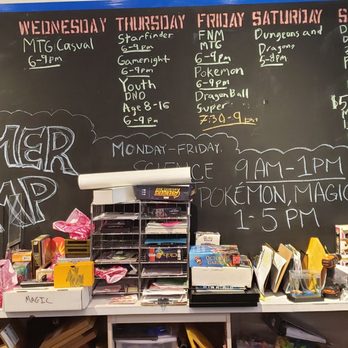 WEDNESDAY THURSDAY FRIDAY SATURDAY S
MTG Casual
6-9pm
Starfinder
6-9pm
Gamenight
6-9pm
Youth
DND
Age 8-16
6-9pm
FNM
MTG
6-9pm
Pokemon
6-9pm
DragonBall
Super
7:30-9pm
Dungeons and
Dragons
5-8pm
MER
MP
MONDAY-FRIDAY
SCIENCE
9AM-1PM
POKÉMON, MAGIC
1-5PM
MAGIC